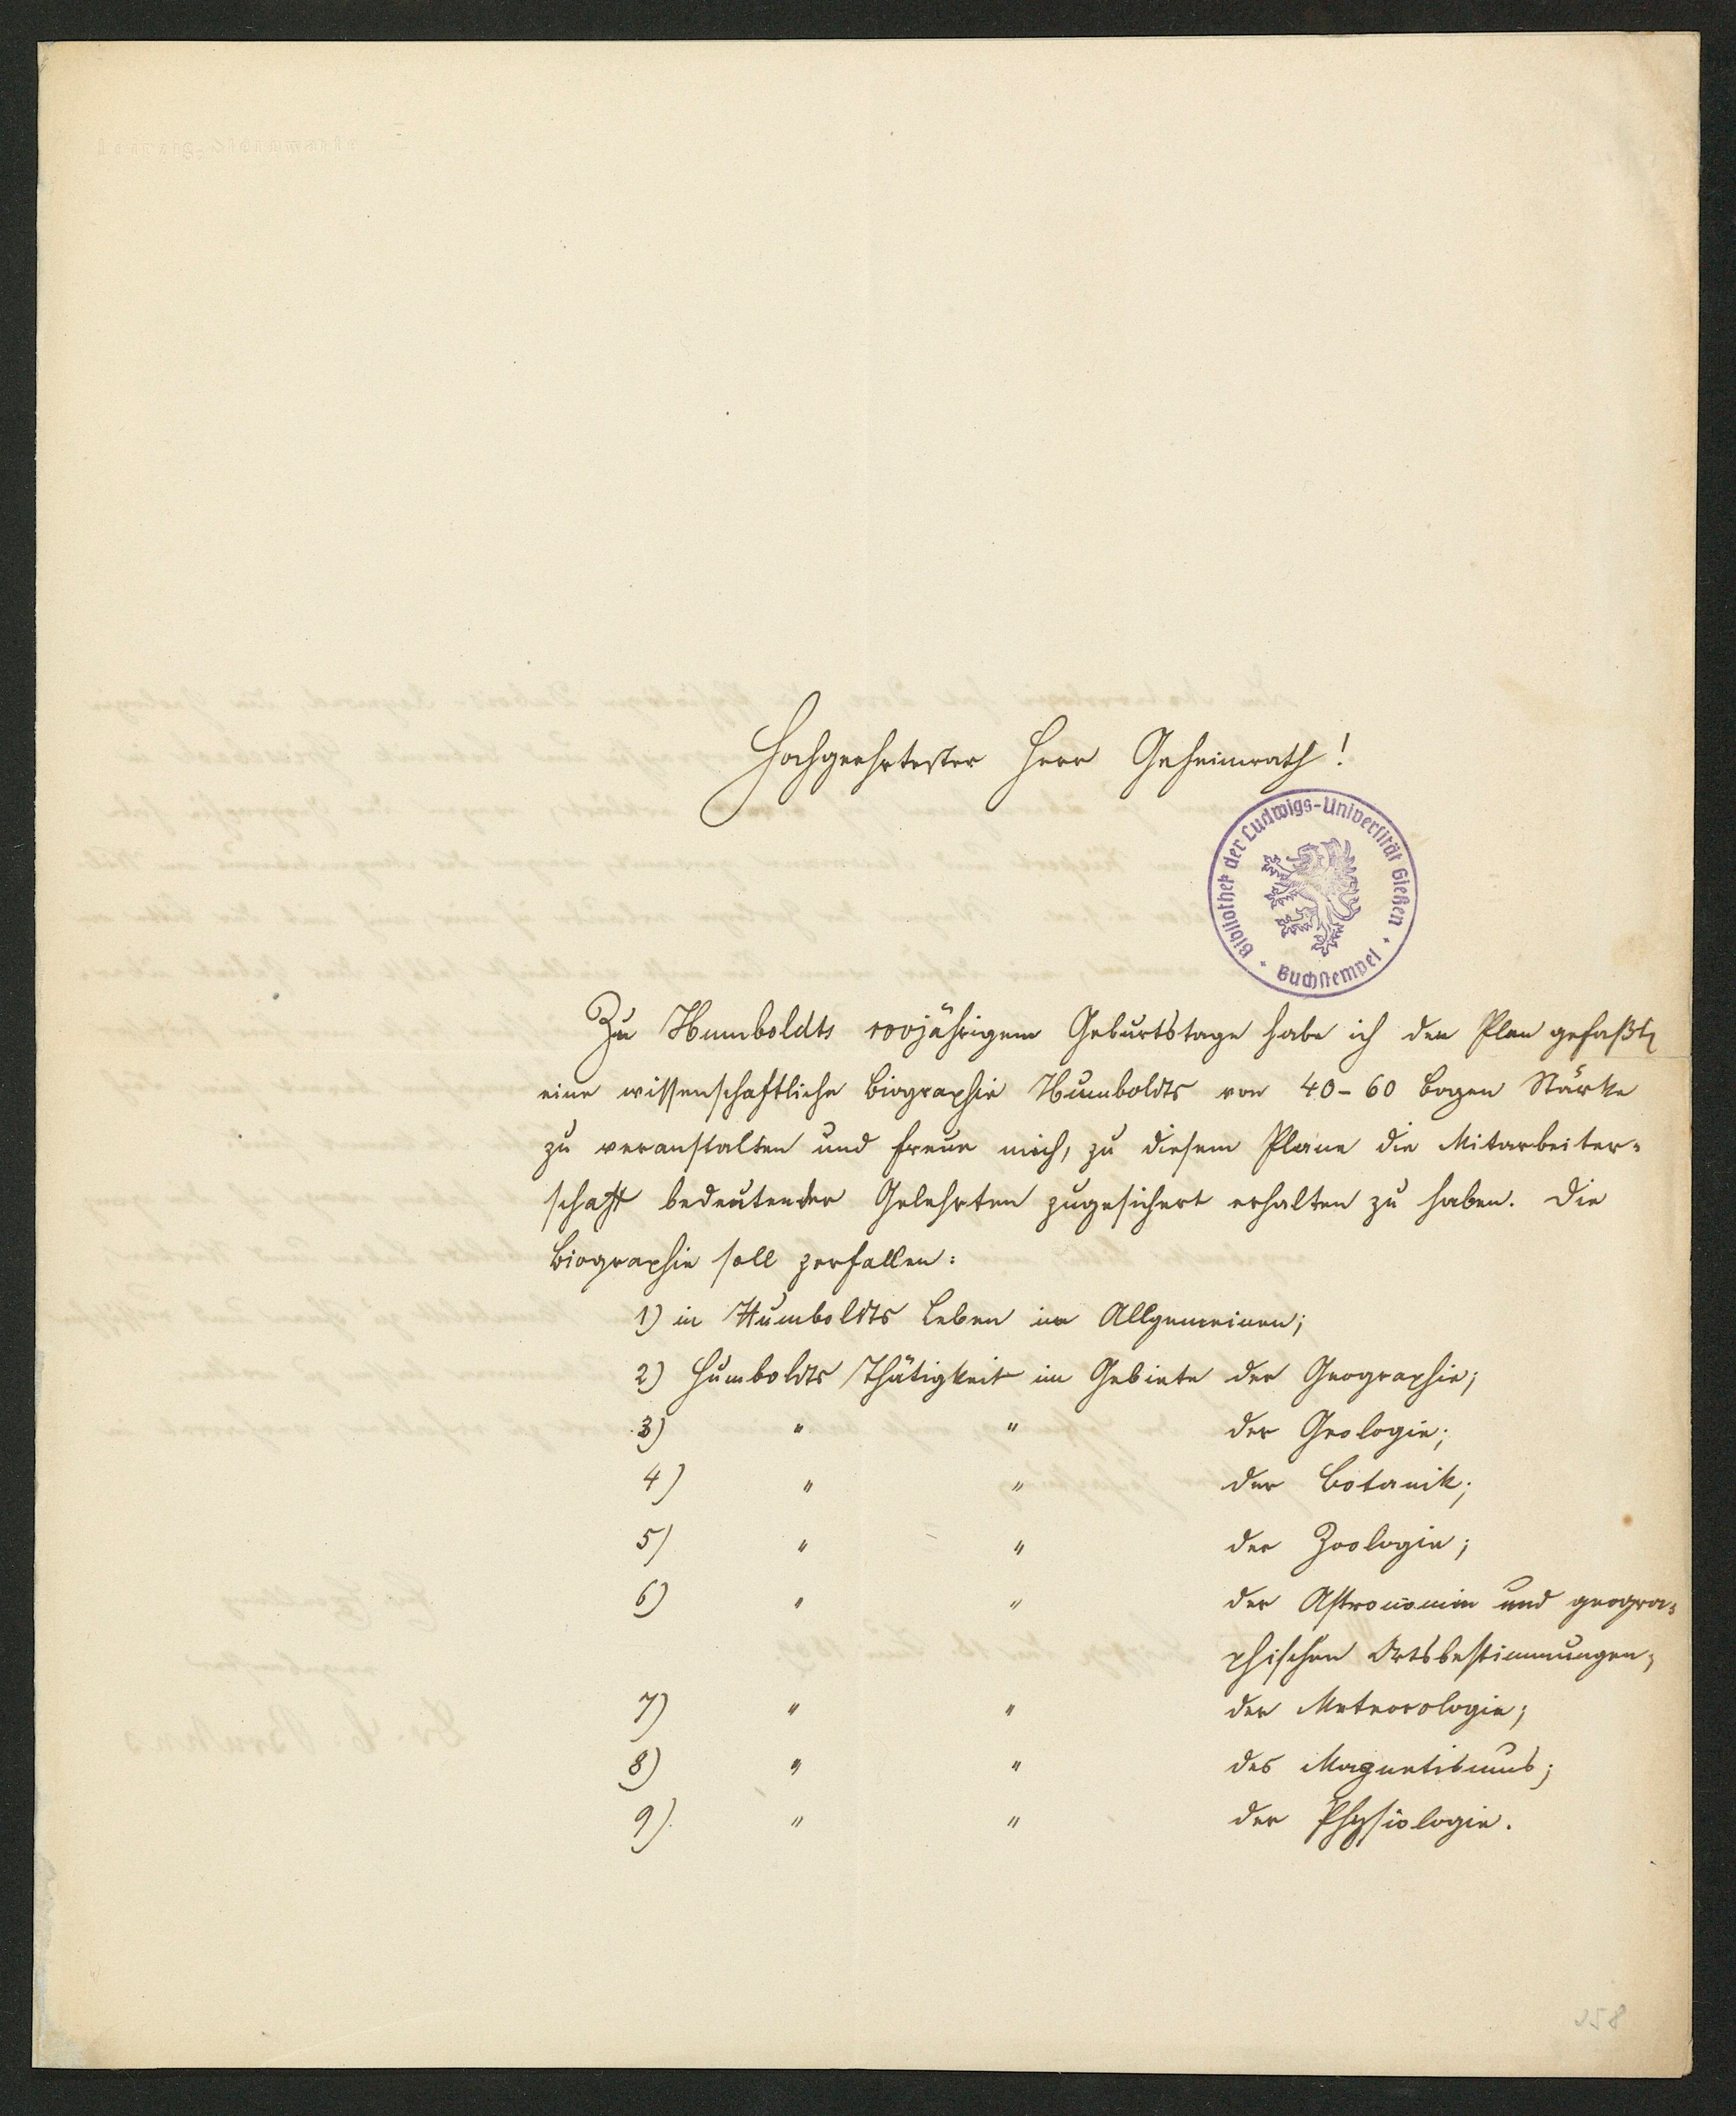 Leipzig, Sternwarte
Hochgeehrtester Herr Geheimrath!
Bibliothek der Ludwigs-Universität Gießen
Buchstempel
Zu Humboldts 100jährigem Geburtstage habe ich den Plan gefaßt,
eine wissenschaftliche Biographie Humboldts von 40-60 Bogen Stärke
zu veranstalten und freue mich, zu diesem Plane die Mitarbeiter-
schaft bedeutender Gelehrten zugesichert erhalten zu haben. Die
Biographie soll zerfallen:
1) in Humboldts Leben im Allgemeinen;
2) Humboldts Thätigkeit im Gebiete der Geographie;
3) " " der Geologie;
4) " " der Botanik;
5) " " der Zoologie;
6) " " der Astronomie und geogra-
phischen Ortsbestimmungen;
7) " " der Meteorologie;
8) " " des Magnetismus;
9) " " der Physiologie.
258